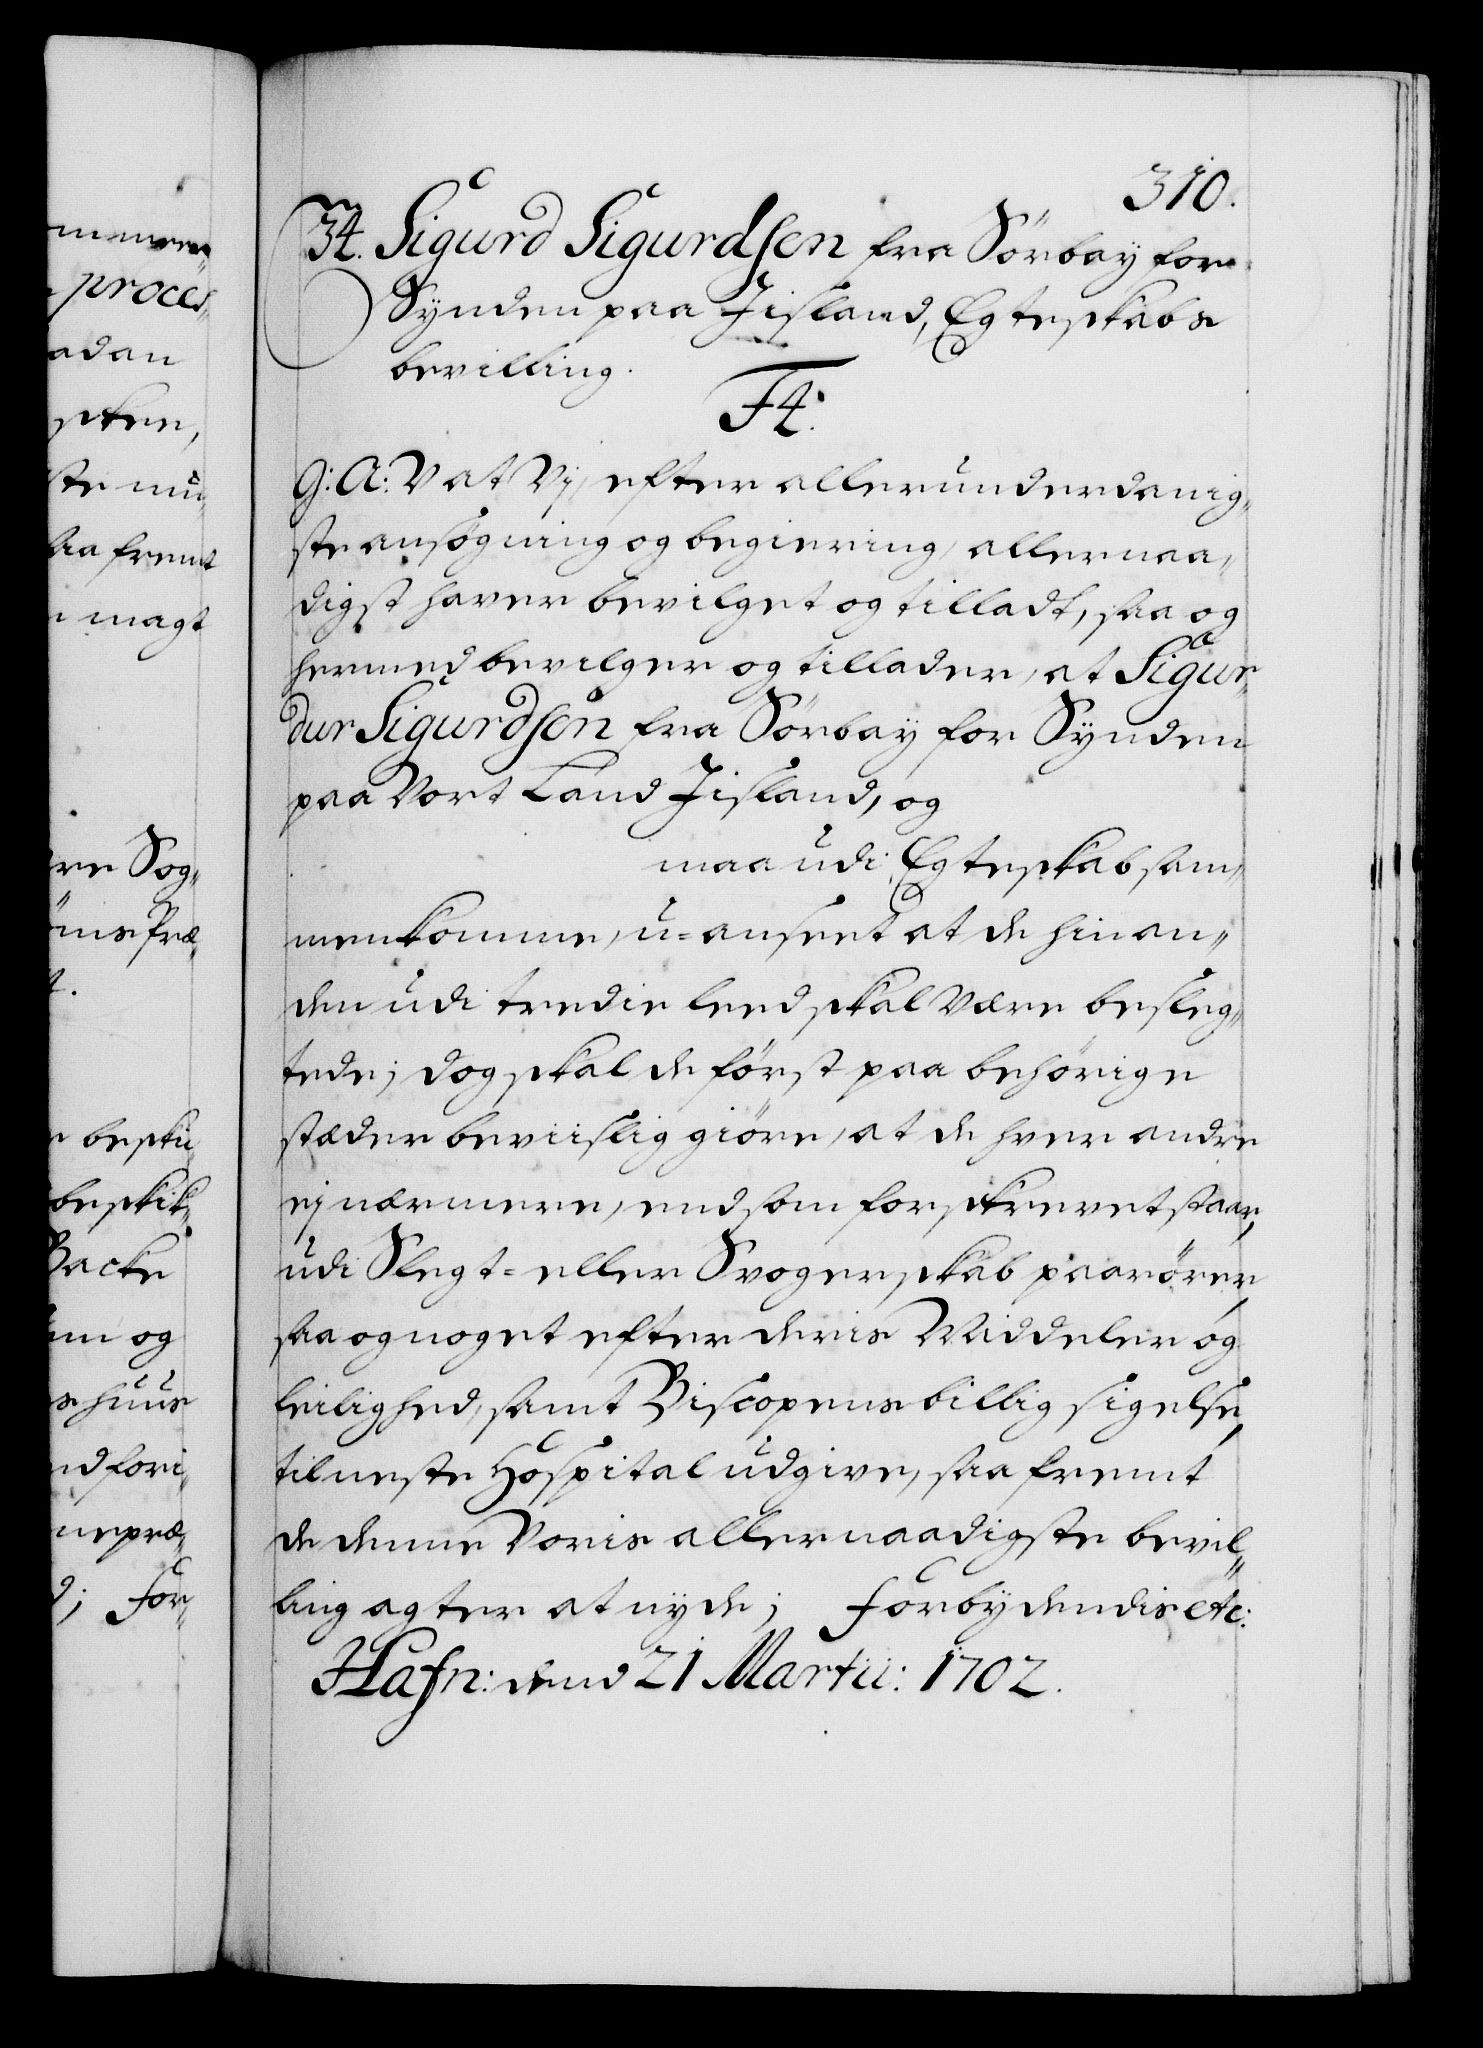 310.
34. Sigurd Sigurdsen fra Sörbay for
Synden paa Jisland, Egteskabs
bevilling.
F4.
G: A: V at Vj, efter allerunderdanig„
ste ansøgning og begiering, allernaa„
digst haver bevilget og tilladt, saa og
hermed bevilger og tillader, at Sigur„
dur Sigurdsen fra Sörbay for Synden
paa Vort Land Jisland, og
maa udi Egteskab sam„
menkomme, u=anseet at de hinan„
den udi tredie leed skal være besleg„
tede; dog skal de först paa behörige
stæder beviislig giöre, at de hver andre
ej nærmere, end som forskrevet staar,
udi Slegt= eller Svogerskab paarörer,
saa og noget efter deris Middeler og
leilighed, samt Biscopens billig sigelse,
til neste Hospital udgive, saa fremt
de denne Voris allernaadigste bevil„
ling agter at nyde; Forbydendis etc:
Hafn: dend 21 Martii: 1702.
proces„
adan
sken,
ste nu„
saa fremt
magt
re Sog„
beskik„
Backe
og
huus
nd fori„
nepræ„
d; For„